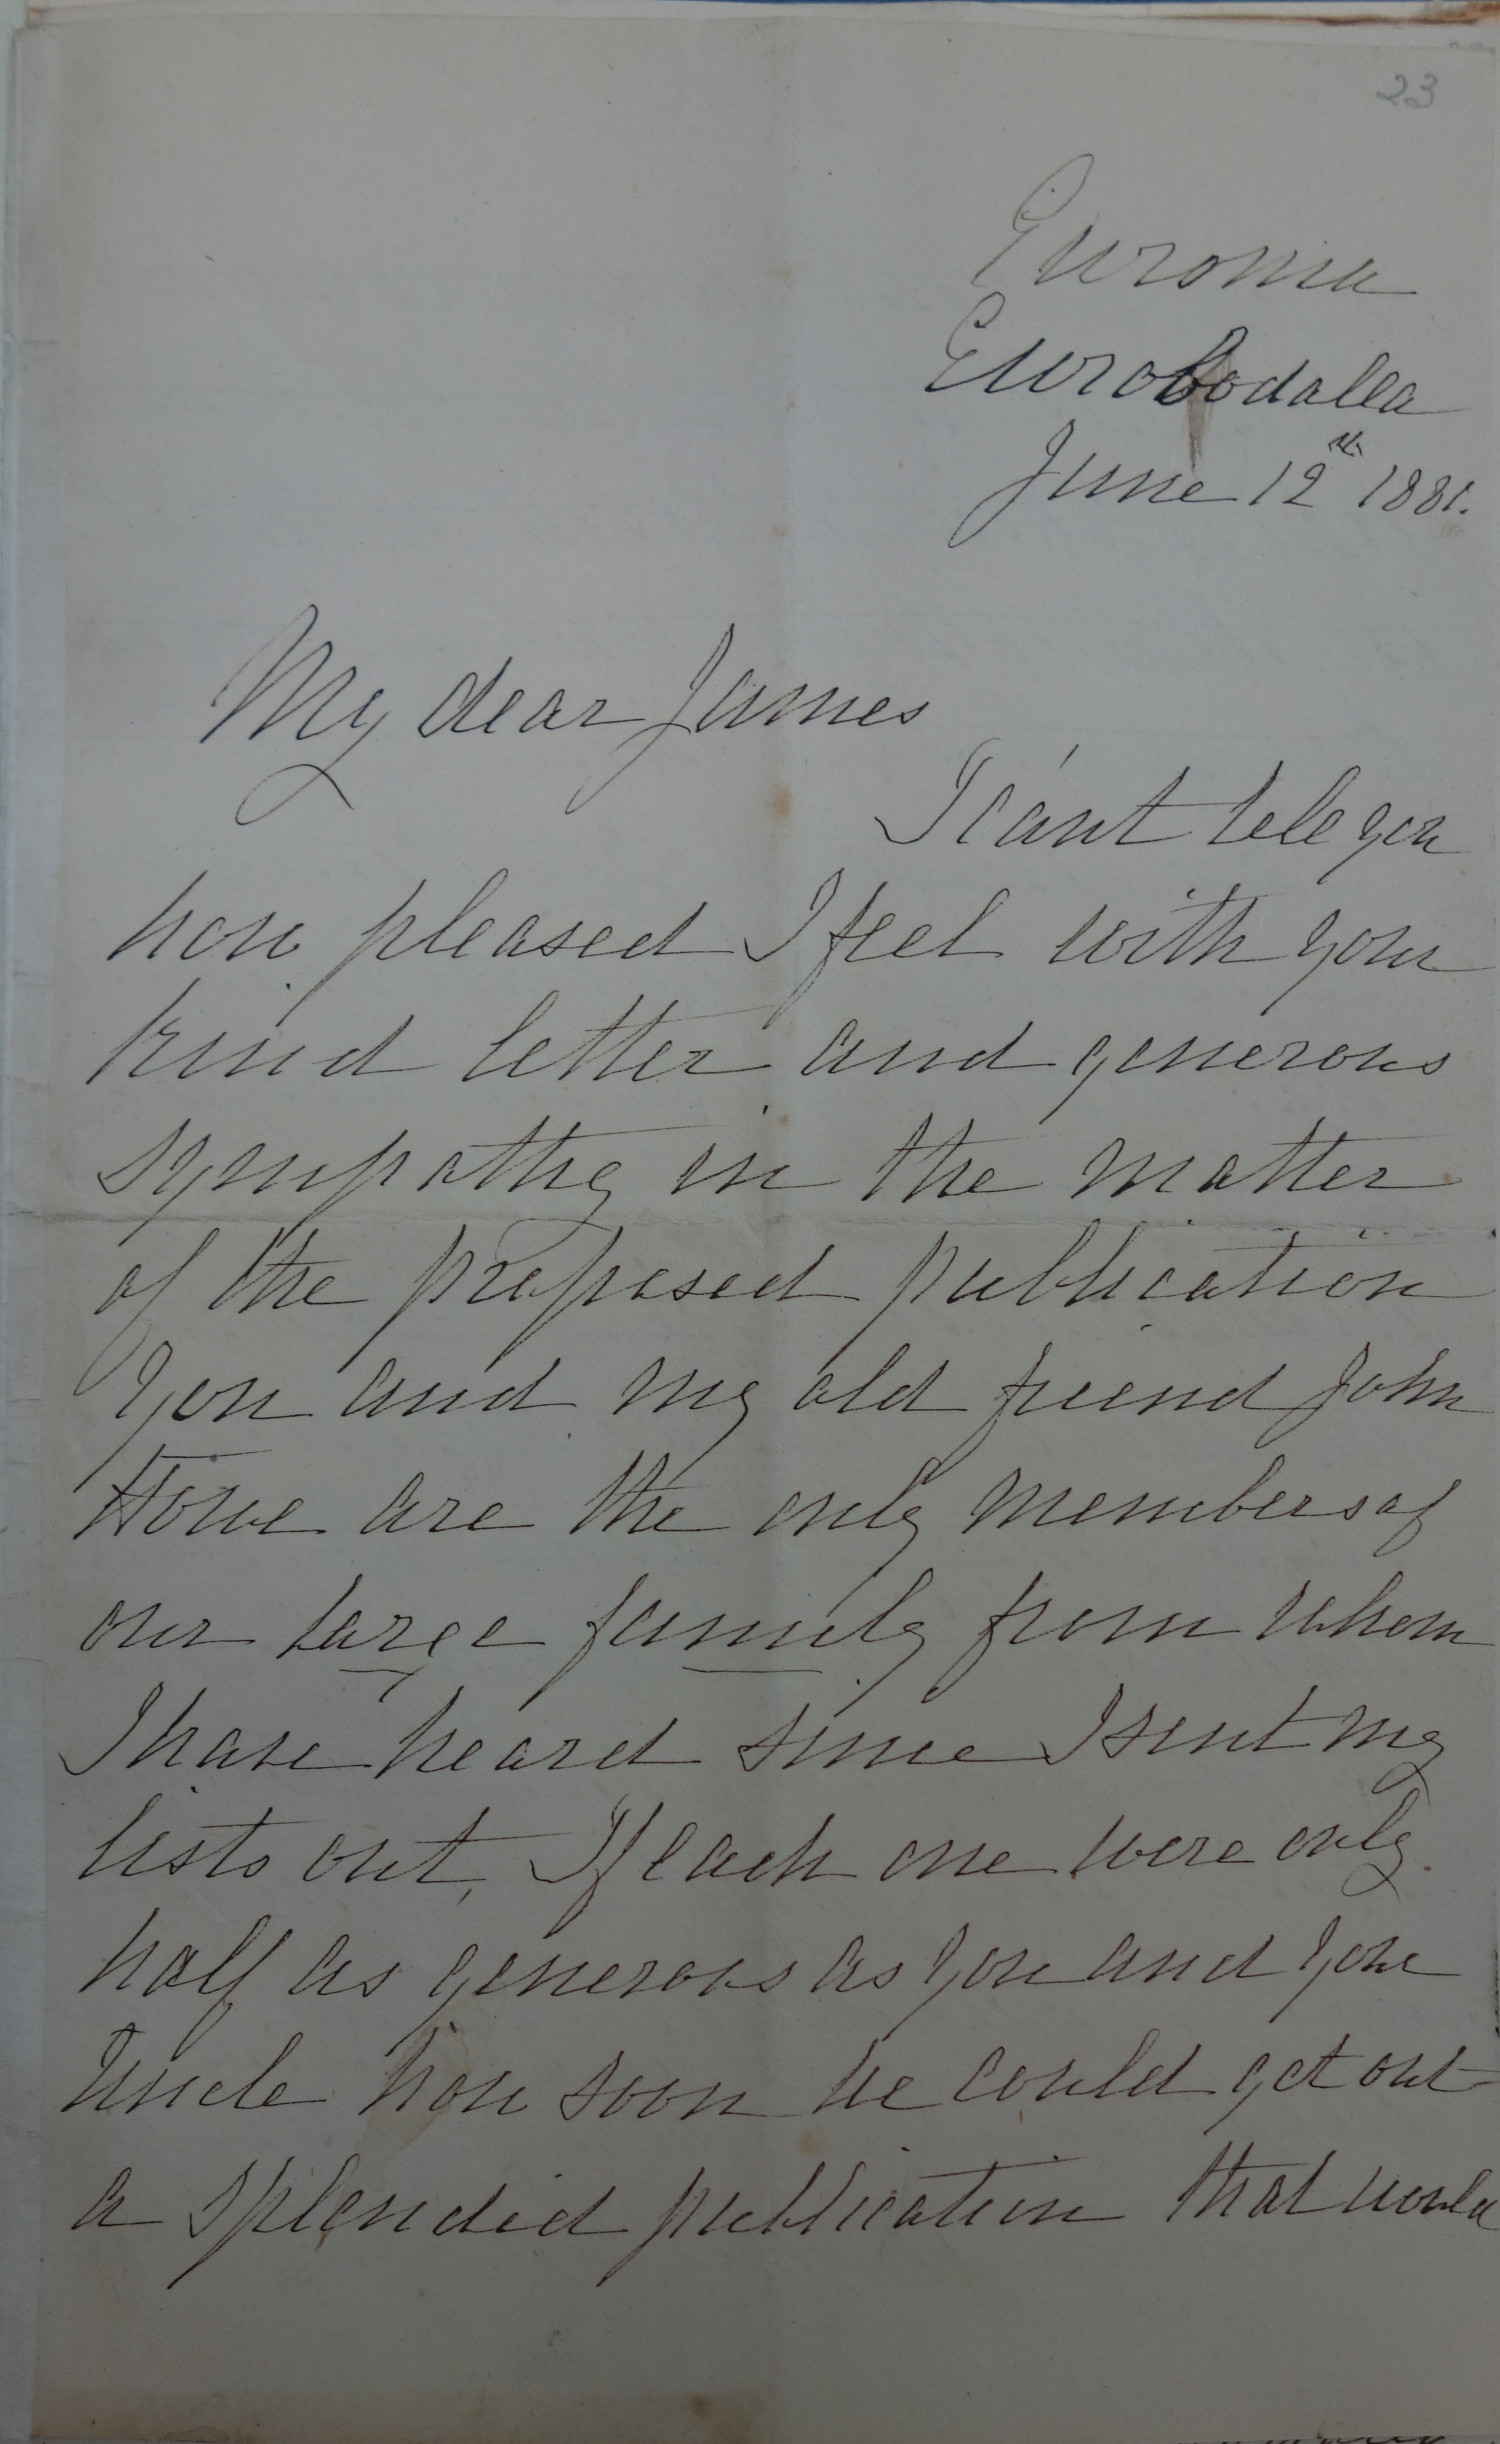 23
Euroma
Eurobodalla
June 12th 1881.
My dear James
I can't tell you
how pleased I feel with your
kind letter and generous
sympathy in the matter
of the proposed publication
You and my old friend John
Howe are the only members of
our large family from whom
I have heard since I sent my
lists out, If each one were only
half as generous as you and your
Uncle how soon we could get out
a splendid publication that would